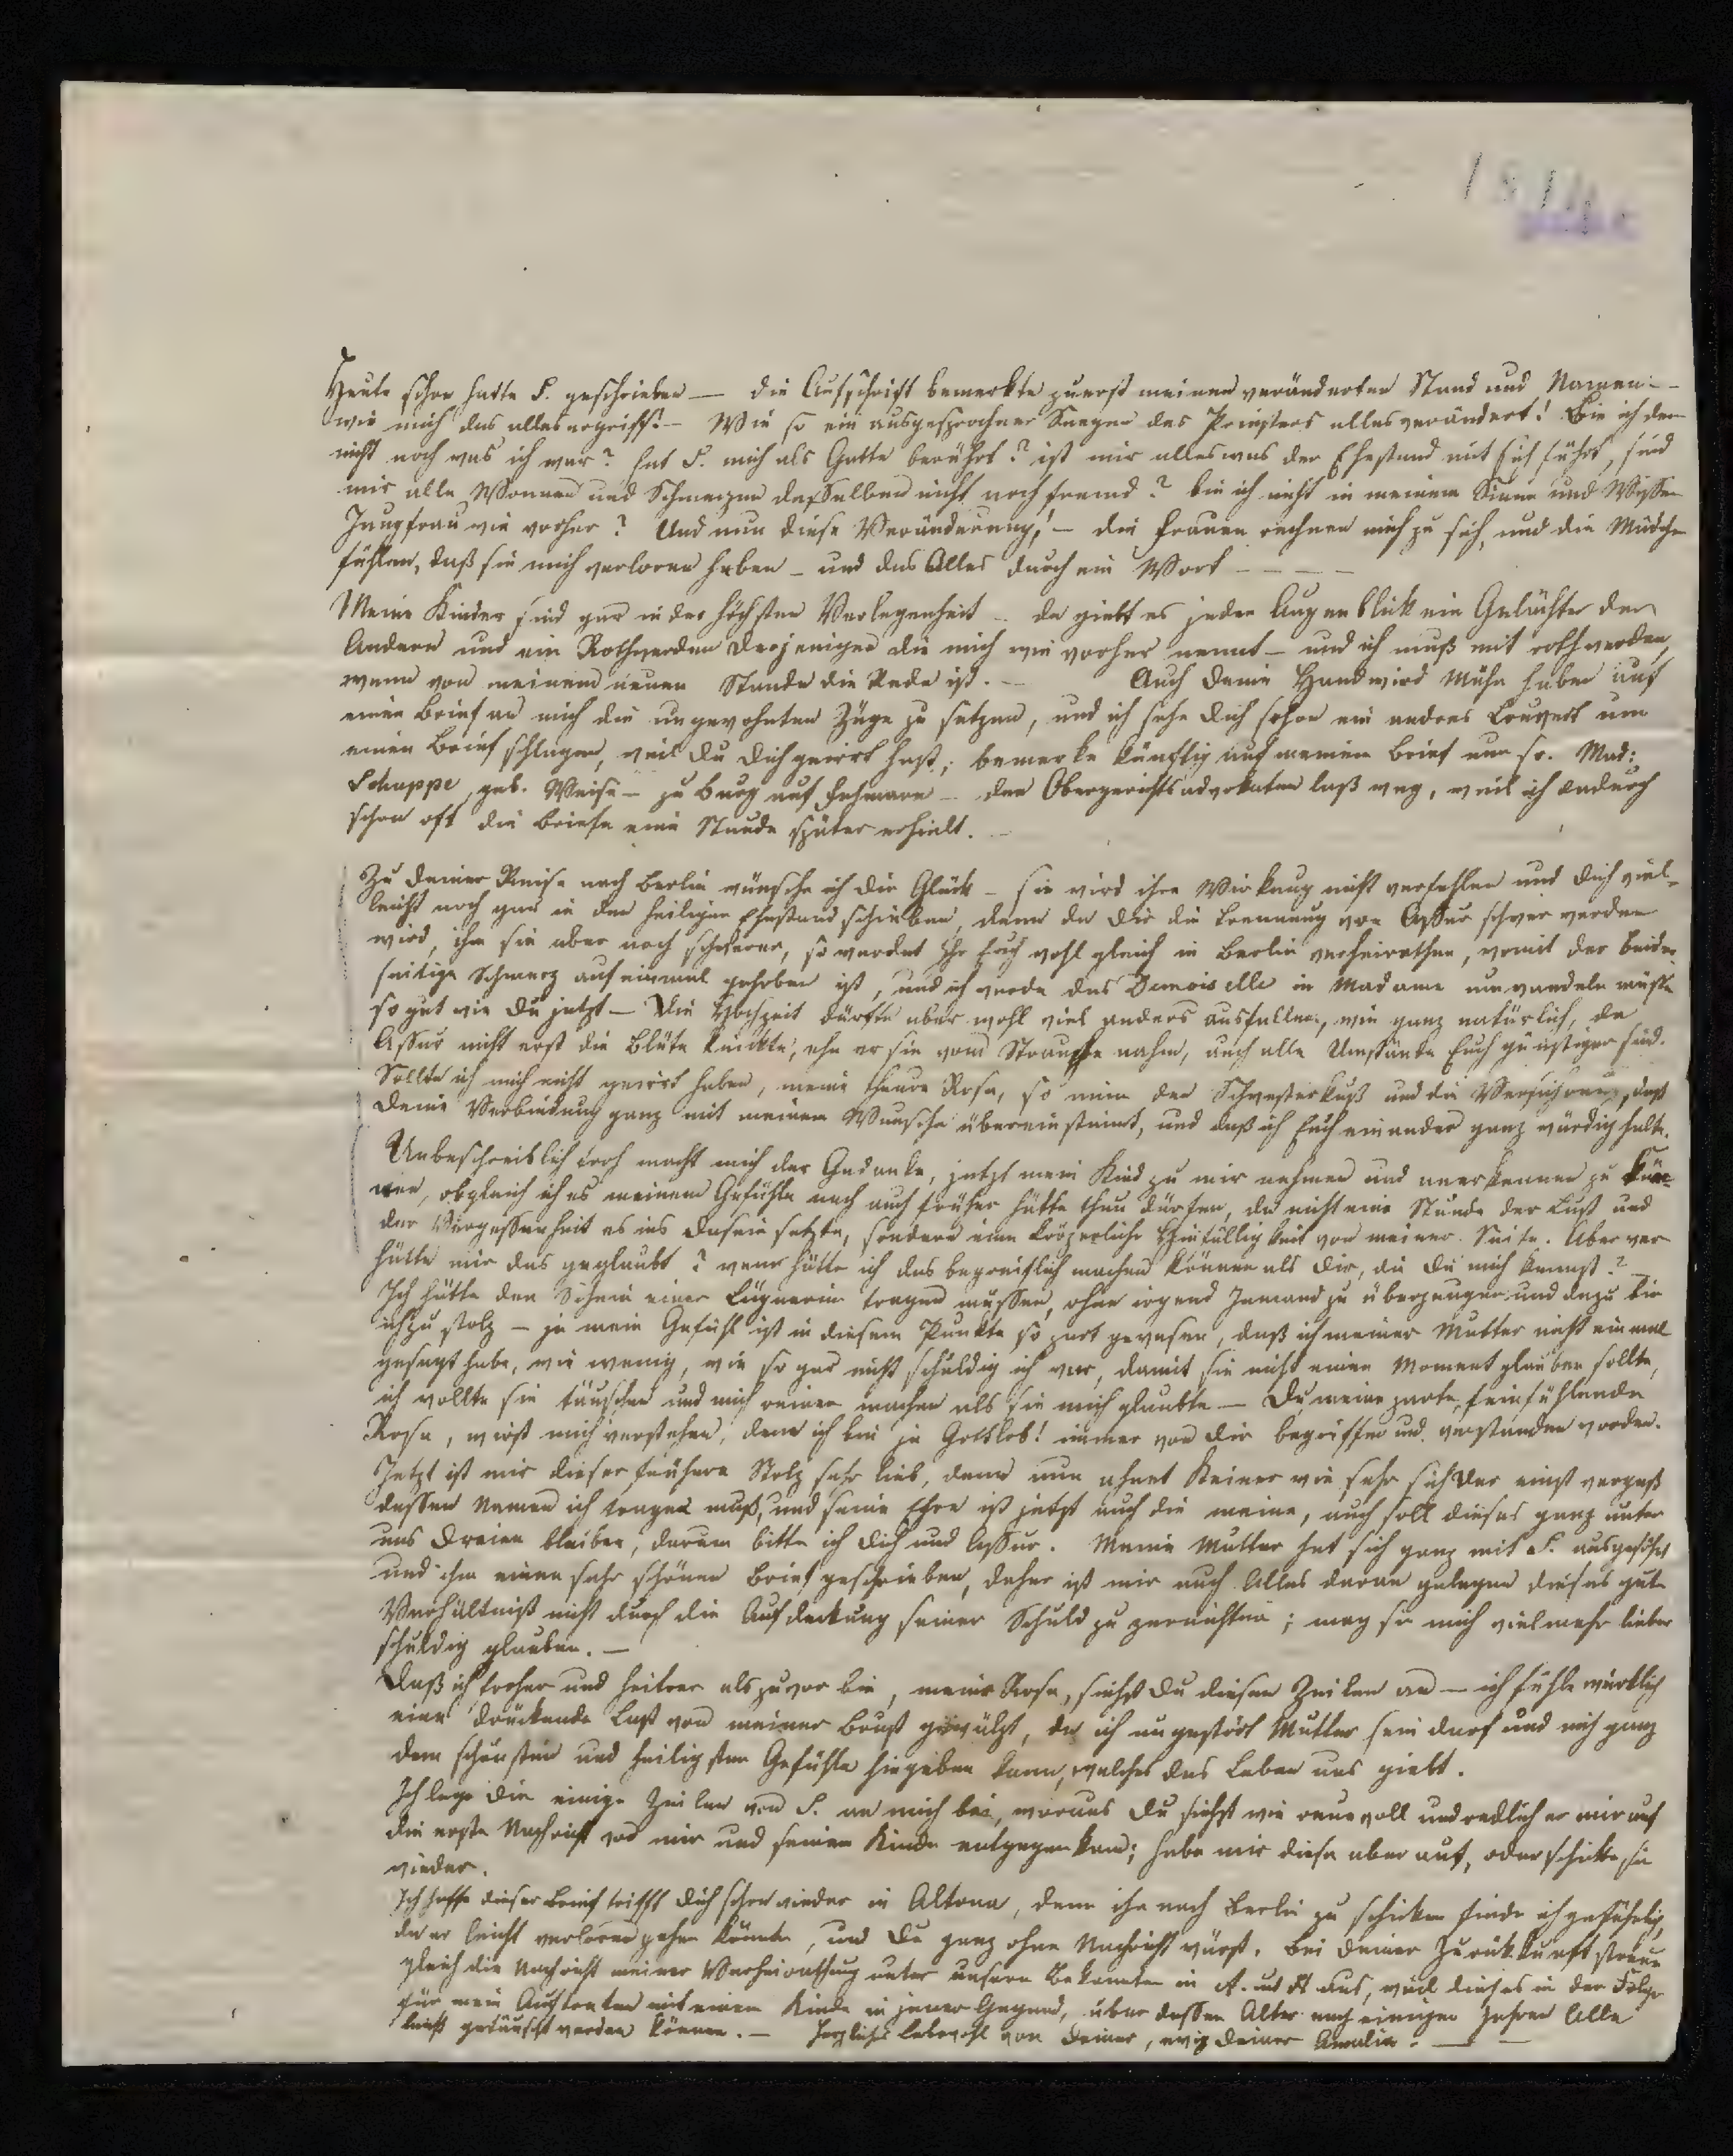 Heute schon hatte S. geschrieben — die Aufschrift bemerkte zuerst meinen veränderten Stand und Namen —
wie mich das alles ergriff! — Wie so ein ausgesprochner Seegen des Priesters alles verändert! Bin ich den
nicht noch was ich war? hat S. mich als Gatte berührt? ist mir alles was der Ehestand mit sich führt, sind
mir alle Wonnen und Schmerzen desselben nicht noch fremd? bin ich nicht in meinem Sinne und Wissen
Jungfrau wie vorher? Und nun diese Veränderung! — die Frauen rechnen mich zu sich, und die Mädchen
fühlen, daß sie mich verloren haben — und das Alles durch ein Wort — — — —
Meine Kinder sind gar in der höchsten Verlegenheit — da giebt es jeden Augenblick ein Gelächter der
Andern und ein Rothwerden derjenigen die mich wie vorher nennt — und ich muß mit roth werden,
wenn von meinem neuen Stande die Rede ist. — Auch deine Hand wird Mühe haben auf
einen Brief an mich die ungewohnten Züge zu setzen, und ich sehe dich schon ein andres Couvert um
einen Brief schlagen, weil du dich geirrt hast; bemerke künftig auf meinen Brief nur so. Mad:
Schoppe, geb. Weise — zu Burg auf Fehmarn — den Obergerichtsadvokaten laß weg, weil ich dadurch
schon oft die Briefe eine Stunde später erhielt. —
Zu deiner Reise nach Berlin wünsche ich dir Glück — sie wird ihre Wirkung nicht verfehlen und dich viel-
leicht noch gar in den heiligen Ehestand schieben, denn da dir die Trennung von Assur schwer werden
wird, ihm sie aber noch schwerer, so werdet Ihr Euch wohl gleich in Berlin verheirathen, womit der beider-
seitige Schmerz auf einmal gehoben ist, und ich werde das Demoiselle in Madame umwandeln müssen
so gut wie du jetzt — Die Hochzeit dürfte aber wohl viel anders ausfallen, wie ganz natürlich, da
Assur nicht erst die Blüte knickte, ehe er sie vom Strauche nahm, auch alle Umstände Euch günstiger sind.
Sollte ich mich nicht geirrt haben, meine theure Rosa, so nimm den Schwesterkuß und die Versicherung, daß
deine Verbindung ganz mit meinem Wunsche übereinstimt, und daß ich Euch einander ganz würdig halte.
Unbeschreiblich froh macht mich der Gedanke, jetzt mein Kind zu mir nehmen und anerkennen zu kön-
nen, obgleich ich es meinem Gefühle nach auch früher hätte thun dürfen, da nicht eine Stunde der Lust und
der Vergessenheit es ins Dasein setzte, sondern eine körperliche Hinfälligkeit von meiner Seite. Aber wer
hätte mir das geglaubt? wem hätte ich das begreiflich machen können als dir, die du mich kennst? —
Ich hätte den Schein einer Lügnerin tragen müssen, ohne irgend Jemand zu überzeugen und dazu bin
ich zu stolz — ja mein Gefühl ist in diesem Punkte so zart gewesen, daß ich meiner Mutter nicht einmal
gesagt habe, wie wenig, wie so gar nicht schuldig ich war, damit sie nicht einen Moment glauben sollte,
ich wollte sie täuschen und mich reiner machen als sie mich glaubte — Du, meine zarte, feinfühlende
Rosa, wirst mich verstehen, denn ich bin ja Gottlob! immer von dir begriffen und verstanden worden.
Jetzt ist mir dieser frühere Stolz sehr lieb, denn nun ahnet Keiner wie sehr sich der einst vergaß
dessen Namen ich tragen muß, und seine Ehre ist jetzt auch die meine, auch soll dieses ganz unter
uns Dreien bleiben, darum bitte ich dich und Assur. Meine Mutter hat sich ganz mit S. ausgesöhnt
und ihm einen sehr schönen Brief geschrieben, daher ist mir auch Alles daran gelegen dieses gute
Verhältniß nicht durch die Aufdeckung seiner Schuld zu zernichten; mag sie mich vielmehr lieber
schuldig glauben. —
Daß ich froher und heitrer als zuvor bin, meine Rosa, siehst du diesen Zeilen an — ich fühle würklich
eine drückende Last von meiner Brust gewälzt, da ich ungestört Mutter sein darf und mich ganz
dem schönsten und heiligsten Gefühle hingeben kann, welches das Leben uns giebt.
Ich lege dir einige Zeilen von S. an mich bei, woraus du siehst wie reuevoll und redlich er mir auf
die erste Nachricht von mir und seinem Kinde entgegenkam; hebe mir diese aber auf, oder schicke sie
wieder.
Ich hoffe dieser Brief trifft dich schon wieder in Altona, denn ihn nach Berlin zu schicken finde ich gefährlich,
da er leicht verloren gehen könnte, und du ganz ohne Nachricht wärst. Bei deiner Zurückkunft streue
gleich die Nachricht meiner Verheirathung unter unsern Bekannten in A. und H aus, weil dieses in der Folge
für mein Auftreten mit einem Kinde in jener Gegend, über dessen Alter nach einigen Jahren Alle
leicht getäuscht werden können. — Herzliches Lebewohl von deiner, ewig deiner Amalia. — —